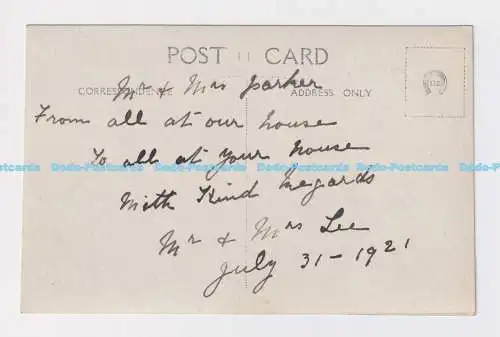 POST CARD
CORRESPONDENCE
ADDRESS ONLY.
Mr & Mrs Parker
From all at our house
To all at your house
With Kind Regards
Mr & Mrs Lee
July 31-1921
Dodo-Postcards Dodo-Postcards Dodo-Postcards Dodo-Postcards Dodo-Postcards